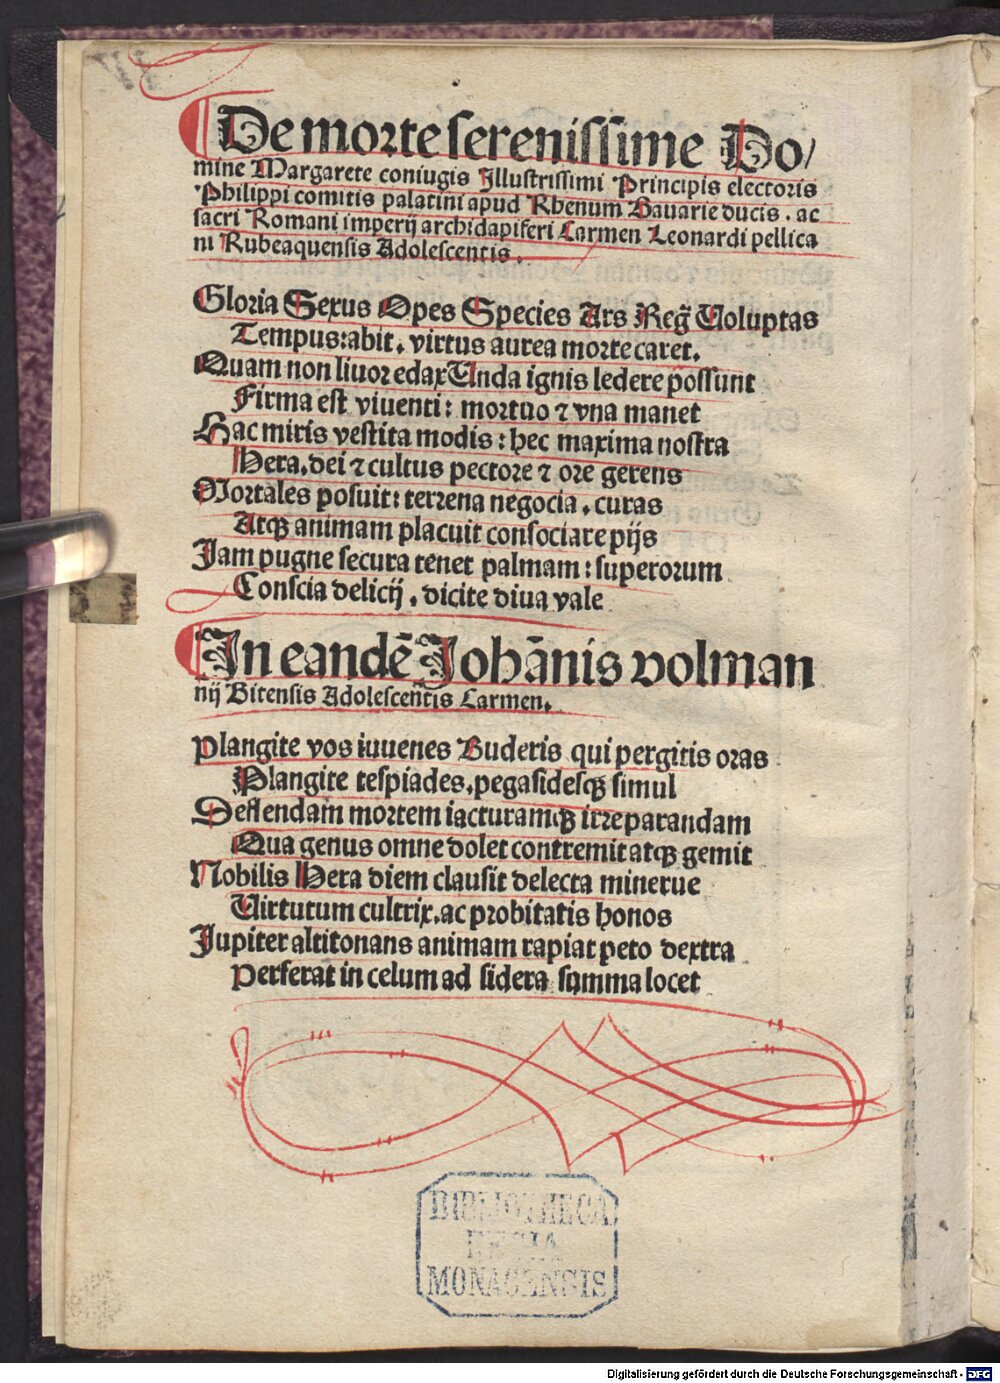 De morte serenissime Do/
mine Margarete coniugis Illustrissimi Principis electoris
Philippi comitis palatini apud Rhenum Bauarie ducis . ac
sacri Romani imperij archidapiferi Carmen Leonardi pellica
ni Rubeaquensis Adolescentis .
Gloria Sexus Opes Species Ars Reg̃ Uoluptas
Tempus:abit . virtus aurea morte caret .
Quam non liuor edax Unda ignis ledere possunt
Firma est viuenti : mortuo ⁊ vna manet
Hac miris vestita modis : hec maxima nostra
Hera . dei ⁊ cultus pectore ⁊ ore gerens
Mortales posuit : terrena negocia . curas
Atqꝫ animam placuit consociare pijs
Iam pugne secura tenet palmam : superorum
Conscia delicij . dicite diua vale
In eandē Johānis volman
nij Bitensis Adolescentis Carmen .
Plangite vos iuuenes Buderis qui pergitis oras
Plangite tespiades . pegasidesqꝫ simul
Deflendam mortem iacturamqꝫ irreparandam
Qua genus omne dolet contremit atqꝫ gemit
Nobilis Hera diem clausit delecta minerue
Uirtutum cultrix . ac probitatis honos
Jupiter altitonans animam rapiat peto dextra
Perferat in celum ad sidera summa locet
BIBLIOTHECA
REGIA
MONACENSIS
Digitalisierung gefördert durch die Deutsche Forschungsgemeinschaft - DFG